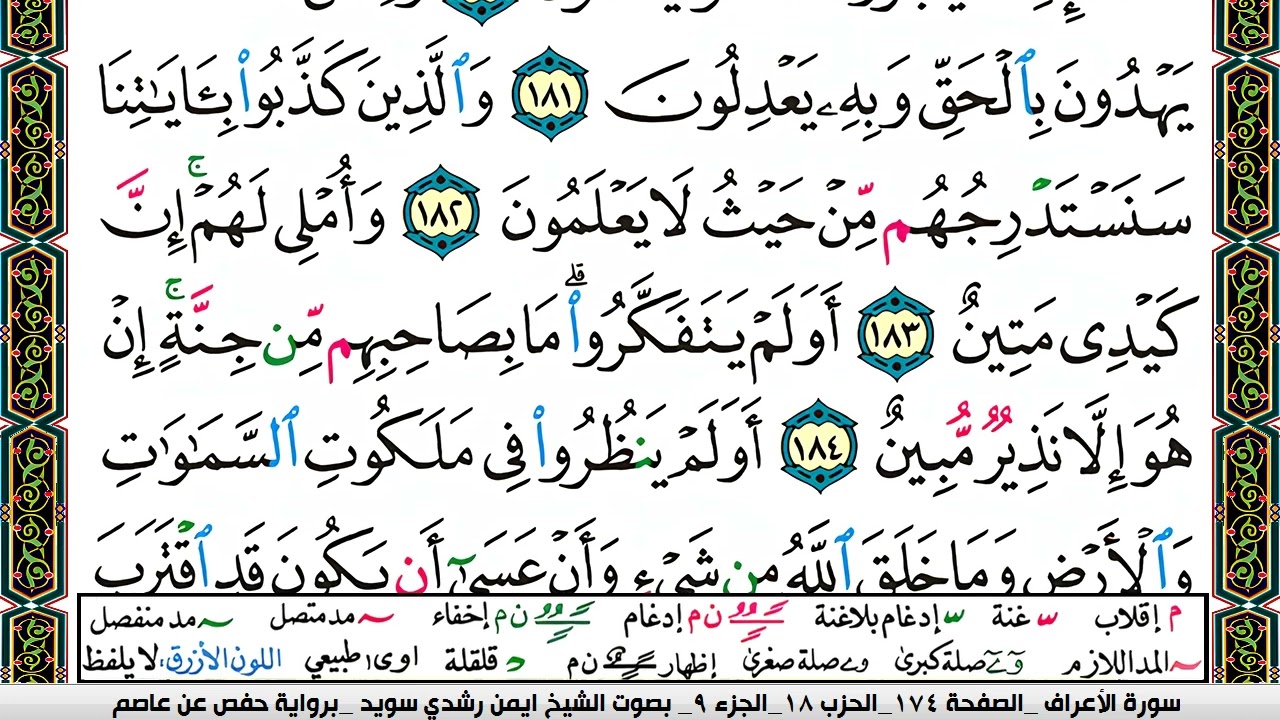 يَهْدُونَ بِٱلْحَقِّ وَبِهِۦ يَعْدِلُونَ ١٨١ وَٱلَّذِينَ كَذَّبُوا۟ بِـَٔايَـٰتِنَا
سَنَسْتَدْرِجُهُم مِّنْ حَيْثُ لَا يَعْلَمُونَ ١٨٢ وَأُمْلِى لَهُمْ ۚ إِنَّ
كَيْدِى مَتِينٌ ١٨٣ أَوَلَمْ يَتَفَكَّرُوا۟ ۗ مَا بِصَاحِبِهِم مِّن جِنَّةٍ ۚ إِنْ
هُوَ إِلَّا نَذِيرٌ مُّبِينٌ ١٨٤ أَوَلَمْ يَنظُرُوا۟ فِى مَلَكُوتِ ٱلسَّمَـٰوَٰتِ
وَٱلْأَرْضِ وَمَا خَلَقَ ٱللَّهُ مِن شَىْءٍ وَأَنْ عَسَىٰٓ أَن يَكُونَ قَدِ ٱقْتَرَبَ
م إقلاب س غنة س إدغام بلاغنة ن م إدغام ن م إخفاء مد متصل مد منفصل
المد اللازم صلة كبرى و ے صلة صغرى إظهار ن م د قلقلة اوى طبيعي اللون الأزرق، لا يلفظ
سورة الأعراف _الصفحة ١٧٤_الحزب ١٨_الجزء ٩_ بصوت الشيخ ايمن رشدي سويد _برواية حفص عن عاصم